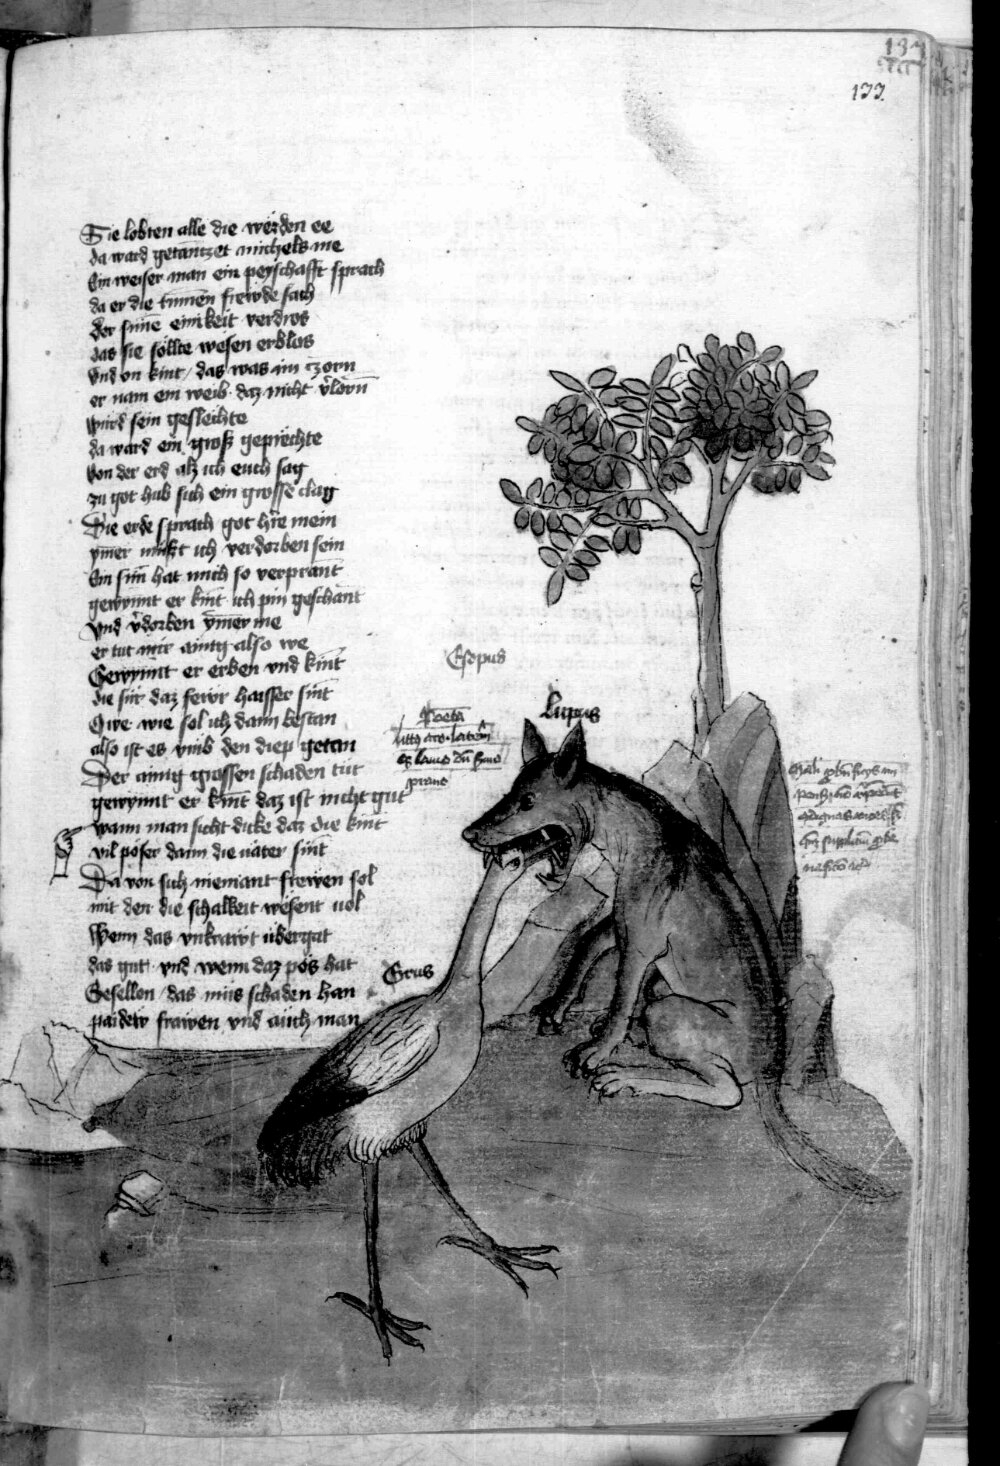 137
133
Sie lobten alle die werden ee
da ward getantzet michels me
Ein weiser man ein peyschafft sprach
da er die tummen frewde sach
der sunne einikeit verdros
das sie sollte wesen erblos
Vnd on kint / das was im zorn
er nam ein weib daz nicht v̓lorn
wurd sein geslechte
da ward ein groß geprechte
von der erd alz ich euch sag
zu got hub sich ein grosse clag
Die erde sprach got h̓re mein
ymer mußt ich verdorben sein
Ein sun hat mich so verprant
gewynnt er kint ich pin geschant
vnd v̓dorben ymer me
er tut mir ainig also we
Gewynnt er erben vnd kint
die sint daz fewr haisser sint
Owe wie sol ich dann bestan
also ist es vmb den diep getan
Der ainig grossen schaden tut
gewynnt er kint daz ist nicht gut
wann man sicht dicke daz die kint
vil poser dann die väter sint
Da von sich niemant frewen sol
mit den die schalkeit wesent uol
Wenn das vnkrawt übergat
das gut vnd wenn daz pös hat
Gesellen / das müs schaden han
paidew frawen vnd auch man
Esopus
Poeta
Lupus
Grus